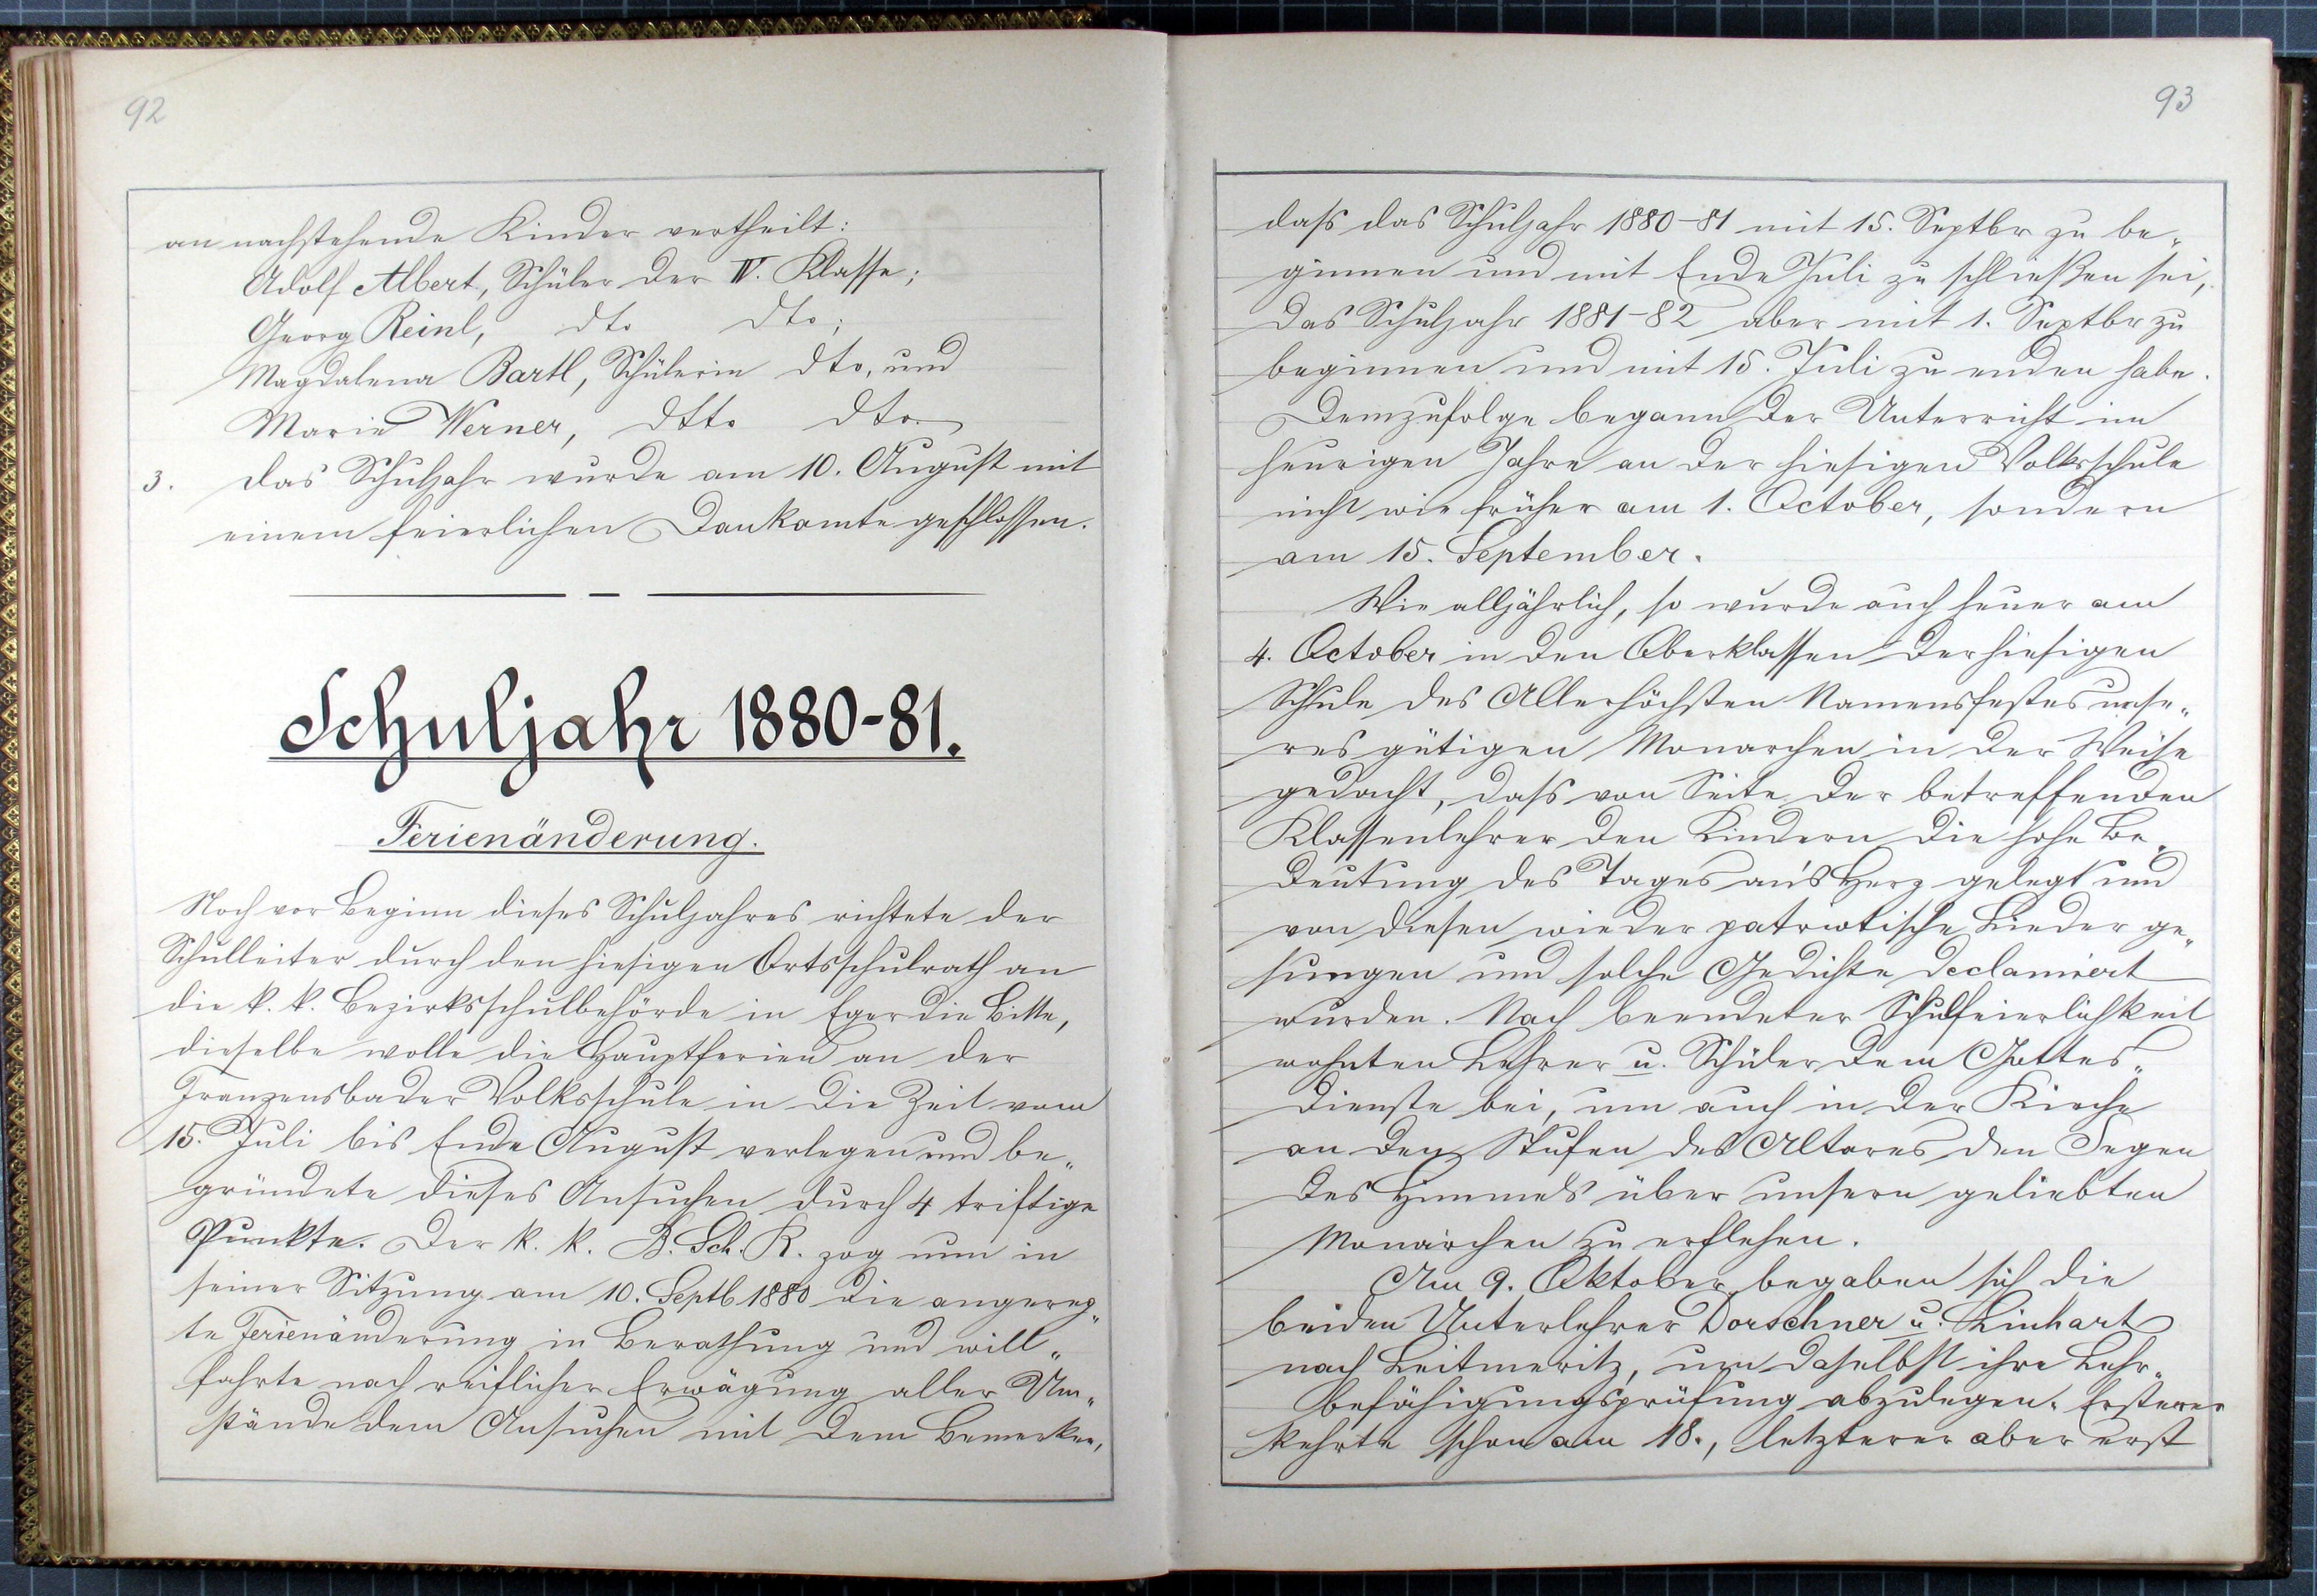 92
an nachstehende Kinder vertheilt:
Adolf Albert, Schüler der IV. Klasse;
Georg Reinl, dto dto;
Magdalena Bartl, Schülerin dto, und
Marie Werner, dtto dto.
3. Das Schuljahr wurde am 10. August mit
einem feierlichen Dankamte geschlossen.
Schuljahr 1880-81.
Ferienänderung.
Noch vor Beginn dieses Schuljahres richtete der
Schulleiter durch den hiesigen Ortsschulrath an
die k. k. Bezirksschulbehörde in Eger die Bitte,
dieselbe wolle die Hauptferien an der
Franzensbader Volksschule in die Zeit vom
15. Juli bis Ende August verlegen und be„
gründete dieses Ansuchen durch 4 triftige
Punkte. Der k. k. B. Sch. R. zog nun in
seiner Sitzung am 10. Septb 1880 die angereg„
te Ferienänderung in Berathung und will„
fahrte nach reiflicher Erwägung aller Um„
stände dem Ansuchen mit dem Bemerken,
93
daß das Schuljahr 1880-81 mit 15. Septbr zu be„
ginnen und mit Ende Juli zu schließen sei,
das Schuljahr 1881-82 aber mit 1. Septbr zu
beginnen und mit 15. Juli zu enden habe.
Demzufolge begann der Unterricht im
heurigen Jahre an der hiesigen Volksschule
nicht wie früher am 1. October, sondern
am 15. September.
Wie alljährlich, so wurde auch heuer am
4. October in den Oberklassen der hiesigen
Schule des Allerhöchsten Namensfestes unse„
res gütigen Monarchen in der Weise
gedacht, daß von Seite der betreffenden
Klassenlehrer den Kindern die hohe Be„
deutung des Tages an's Herz gelegt und
von diesen wieder patriotische Lieder ge„
sungen und solche Gedichte declamiert
wurden. Nach beendeter Schulfeierlichkeit
wohnten Lehrer u. Schüler dem Gottes„
dienste bei, um auch in der Kirche
an den Stufen des Altares den Segen
des Himmels über unsern geliebten
Monarchen zu erflehen.
Am 9. Oktober begaben sich die
beiden Unterlehrer Dorschner u. Linhart
nach Leitmeritz, um daselbst ihre Lehr„
befähigungsprüfung abzulegen. Ersterer
kehrte schon am 18., letzterer aber erst